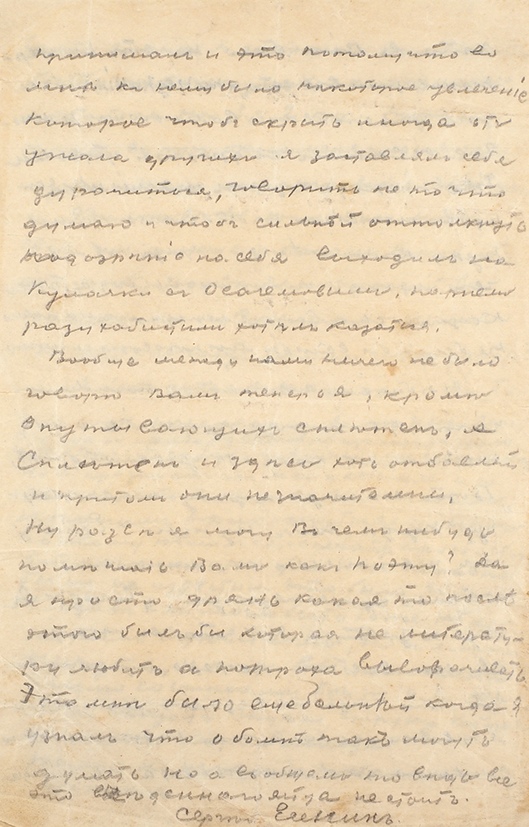 принималь и это потому что во
мнѣ к нему было некоторое увлечение
которое чтобъ скрыть иногда отъ
узнала других я заставлял себя
дурачиться, говорить не то что
думаю и чтобъ сильнѣй оттолкнуть
подозрѣніе на себя выходилъ на
кулачки съ Овагемовым, парнем
разухабистым хотѣлъ казаться.
Вообще между нами ничего не было
говорю Вамъ теперь я, кроме
опутывающих сплѣтенъ, а
Сплѣтенъ и здѣсь хоть отбавляй
и притом они незначительны,
Ну развѣ я могу в чемъ нибудь
помѣшать Вамъ какъ поэту? Да
я просто дрянь какая то послѣ
этого былъ бы которая не литерату-
ру любитъ а потроха выворачивать
Это мнѣ было еще больнѣй когда я
узналъ что обо мнѣ такъ могутъ
думать но а въ общемъ то вѣдь все
это выѣденного яйца не стоитъ.
Сергѣй Есенинъ.